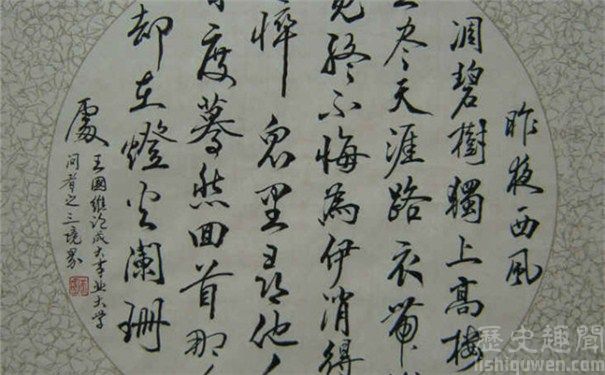 昨夜西風
凋碧樹獨上高樓
尽天涯路衣帶
終不悔為伊消得
悴眾里尋他
度驀然回首那
却在燈火闌珊
處
王國維論成大事業大學
問者之三境界
歷史趣聞
lishiquwen.com